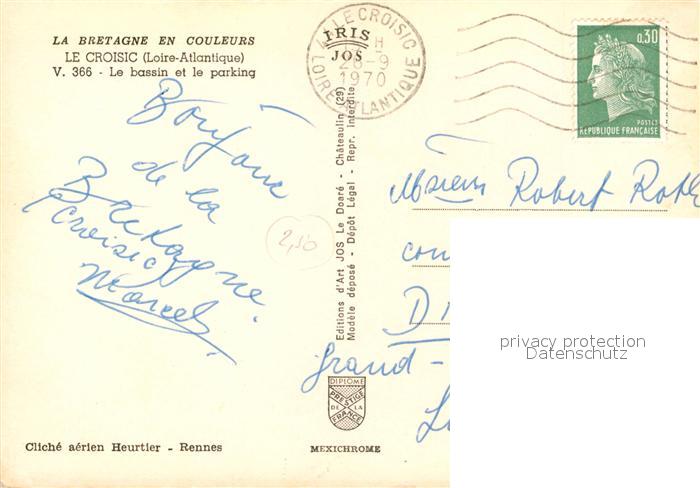 LA BRETAGNE EN COULEURS
LE CROISIC (Loire-Atlantique)
V. 366 - Le bassin et le parking
IRIS
JOS
44 LE CROISIC
H
28-9
1970
LOIRE-ATLANTIQUE
0,30
POSTES
REPUBLIQUE FRANÇAISE
Bonjour
de la
Bretagne.
Croisic
Marcel
2,50
Editions d'Art JOS Le Doaré - Châteaulin (29)
Modèle déposé - Dépôt Légal - Repr. interdite
Robert
D
Grand-
privacy protection
Datenschutz
DIPLOME
PRESTIGE
DE LA
FRANCE
Cliché aérien Heurtier - Rennes
MEXICHROME